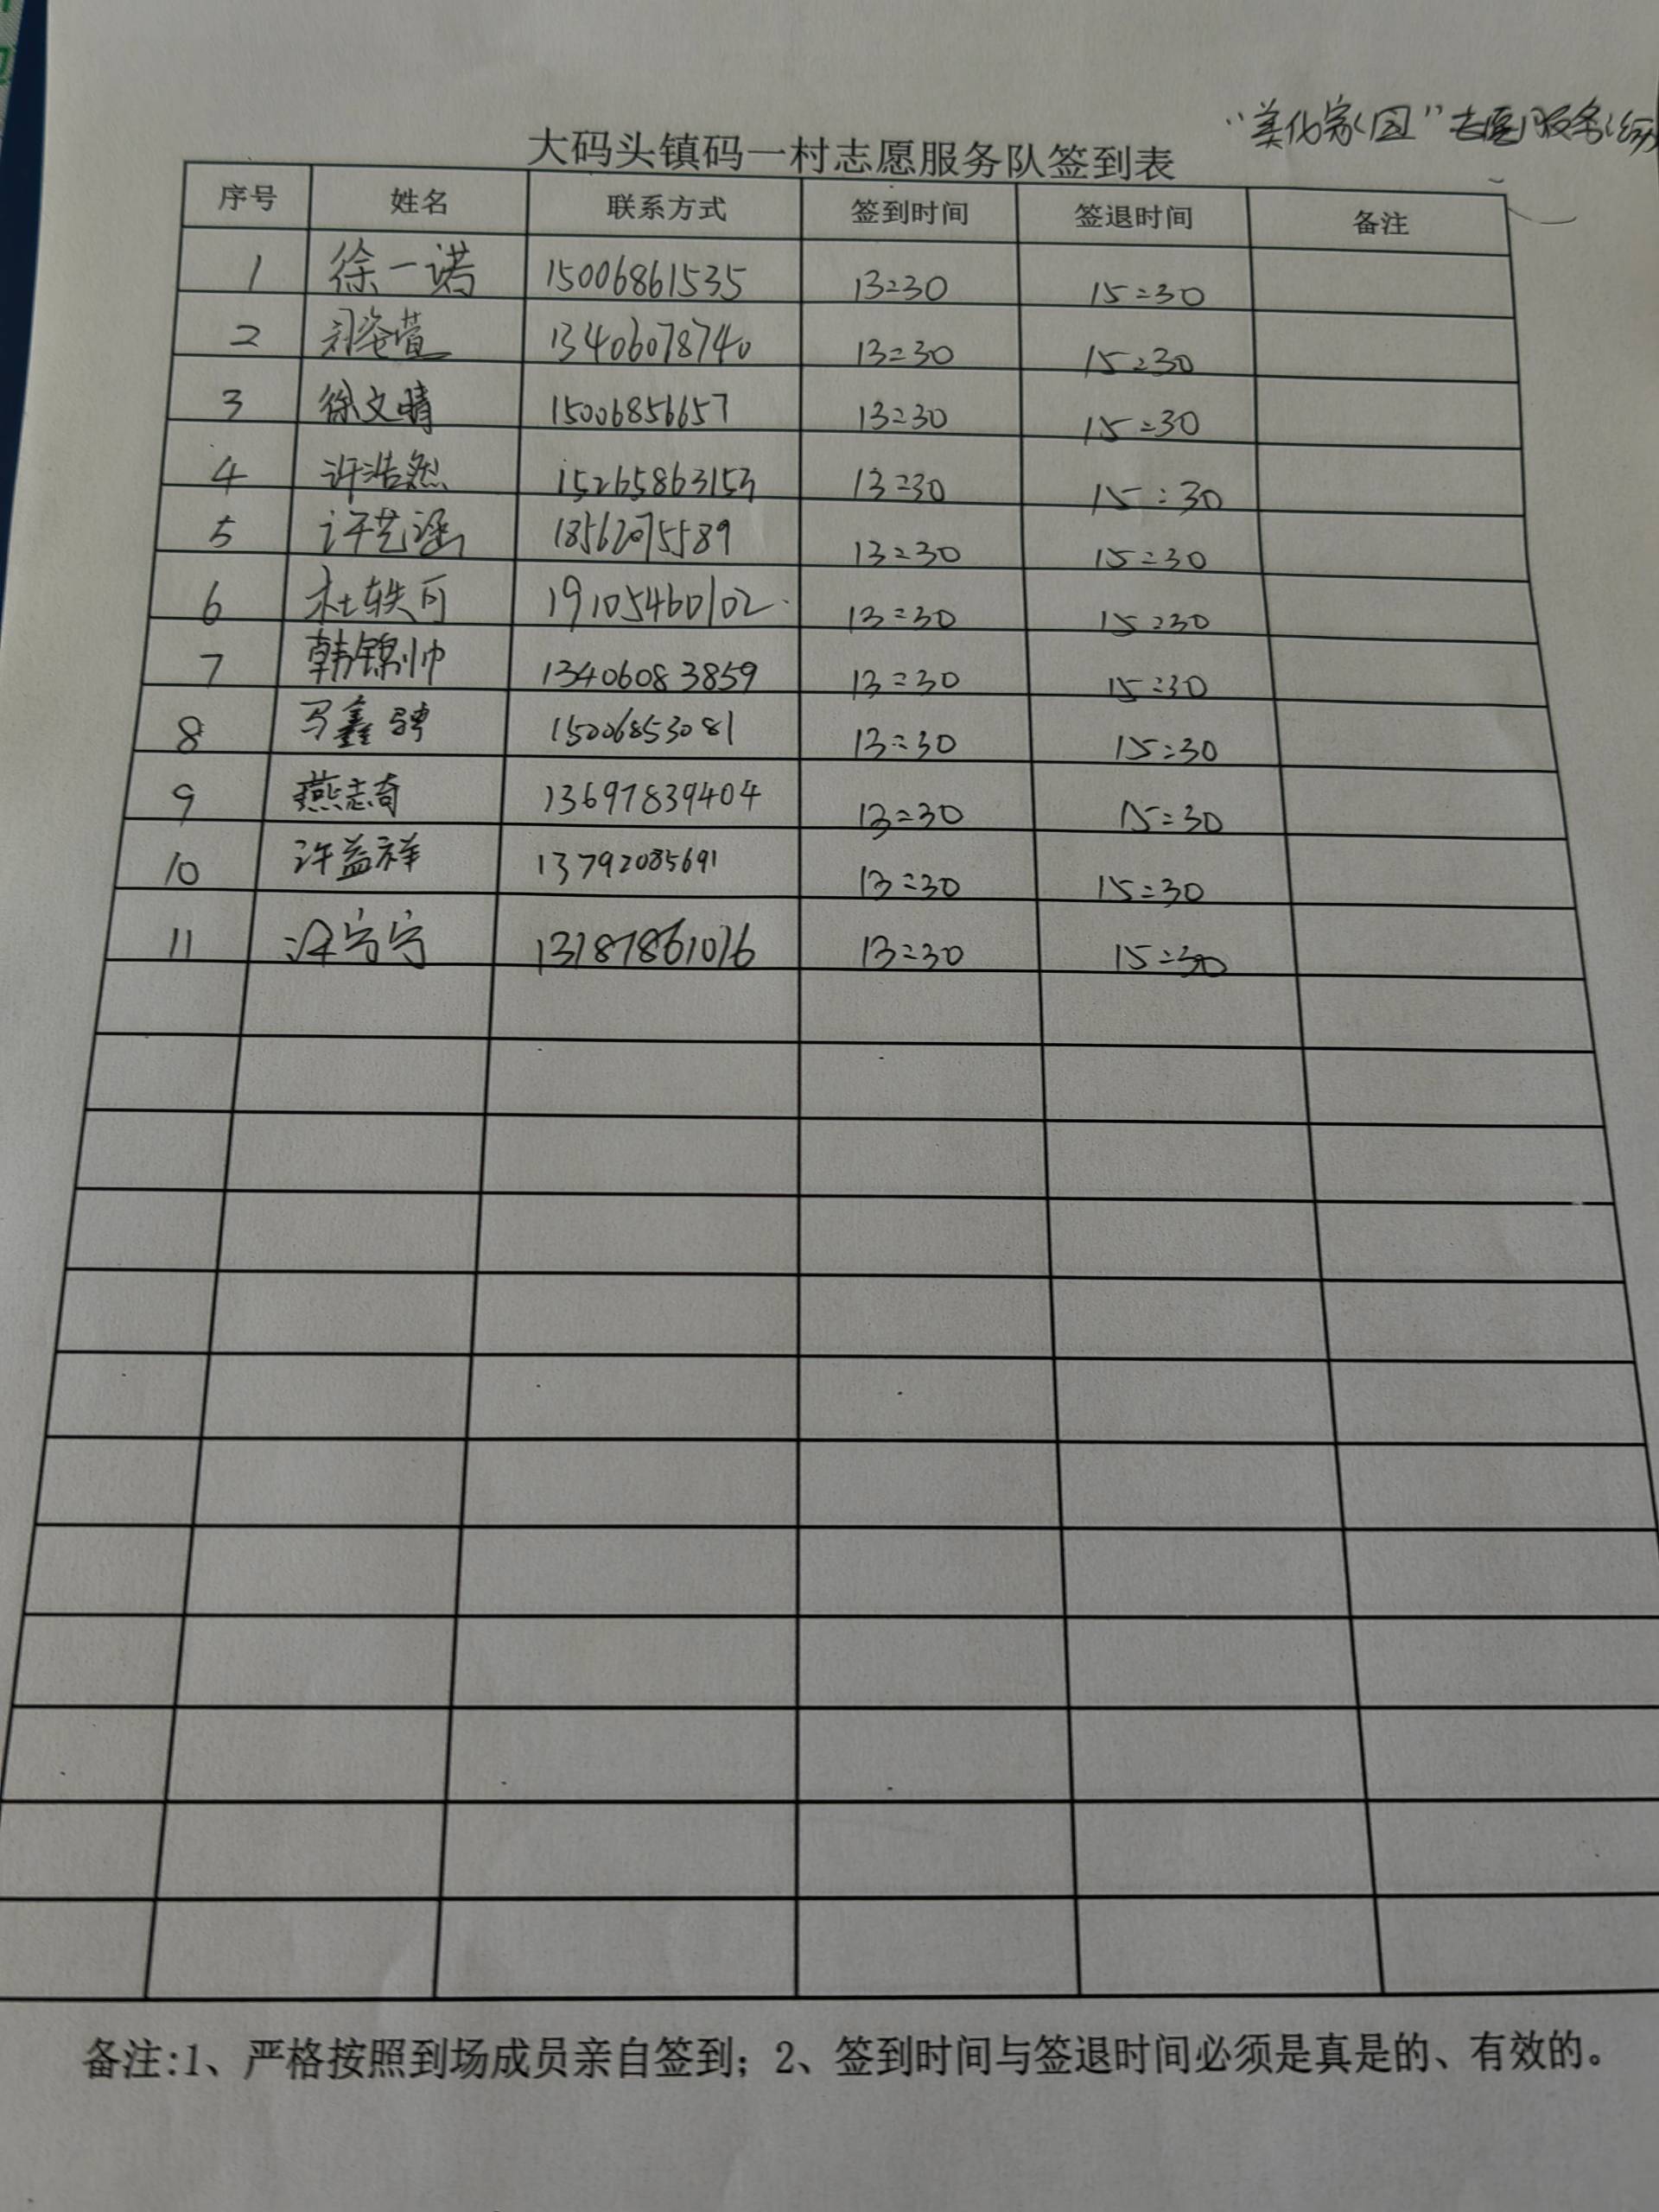 "美化家园"志愿服务活动
大码头镇码一村志愿服务队签到表
序号 姓名 联系方式 签到时间 签退时间 备注
1 徐一诺 15006861535 13:30 15:30
2 13406078740 13:30 15:30
3 徐文晴 15006856657 13:30 15:30
4 许浩然 15265863153 13:30 15:30
5 许艺涵 18562075589 13:30 15:30
6 杜轶可 19105460102 13:30 15:30
7 韩锦帅 13406083859 13:30 15:30
8 马鑫骋 15006853081 13:30 15:30
9 燕志奇 13697839404 13:30 15:30
10 许益祥 13792085691 13:30 15:30
11 13:30 15:30
备注:1、严格按照到场成员亲自签到；2、签到时间与签退时间必须是真是的、有效的。